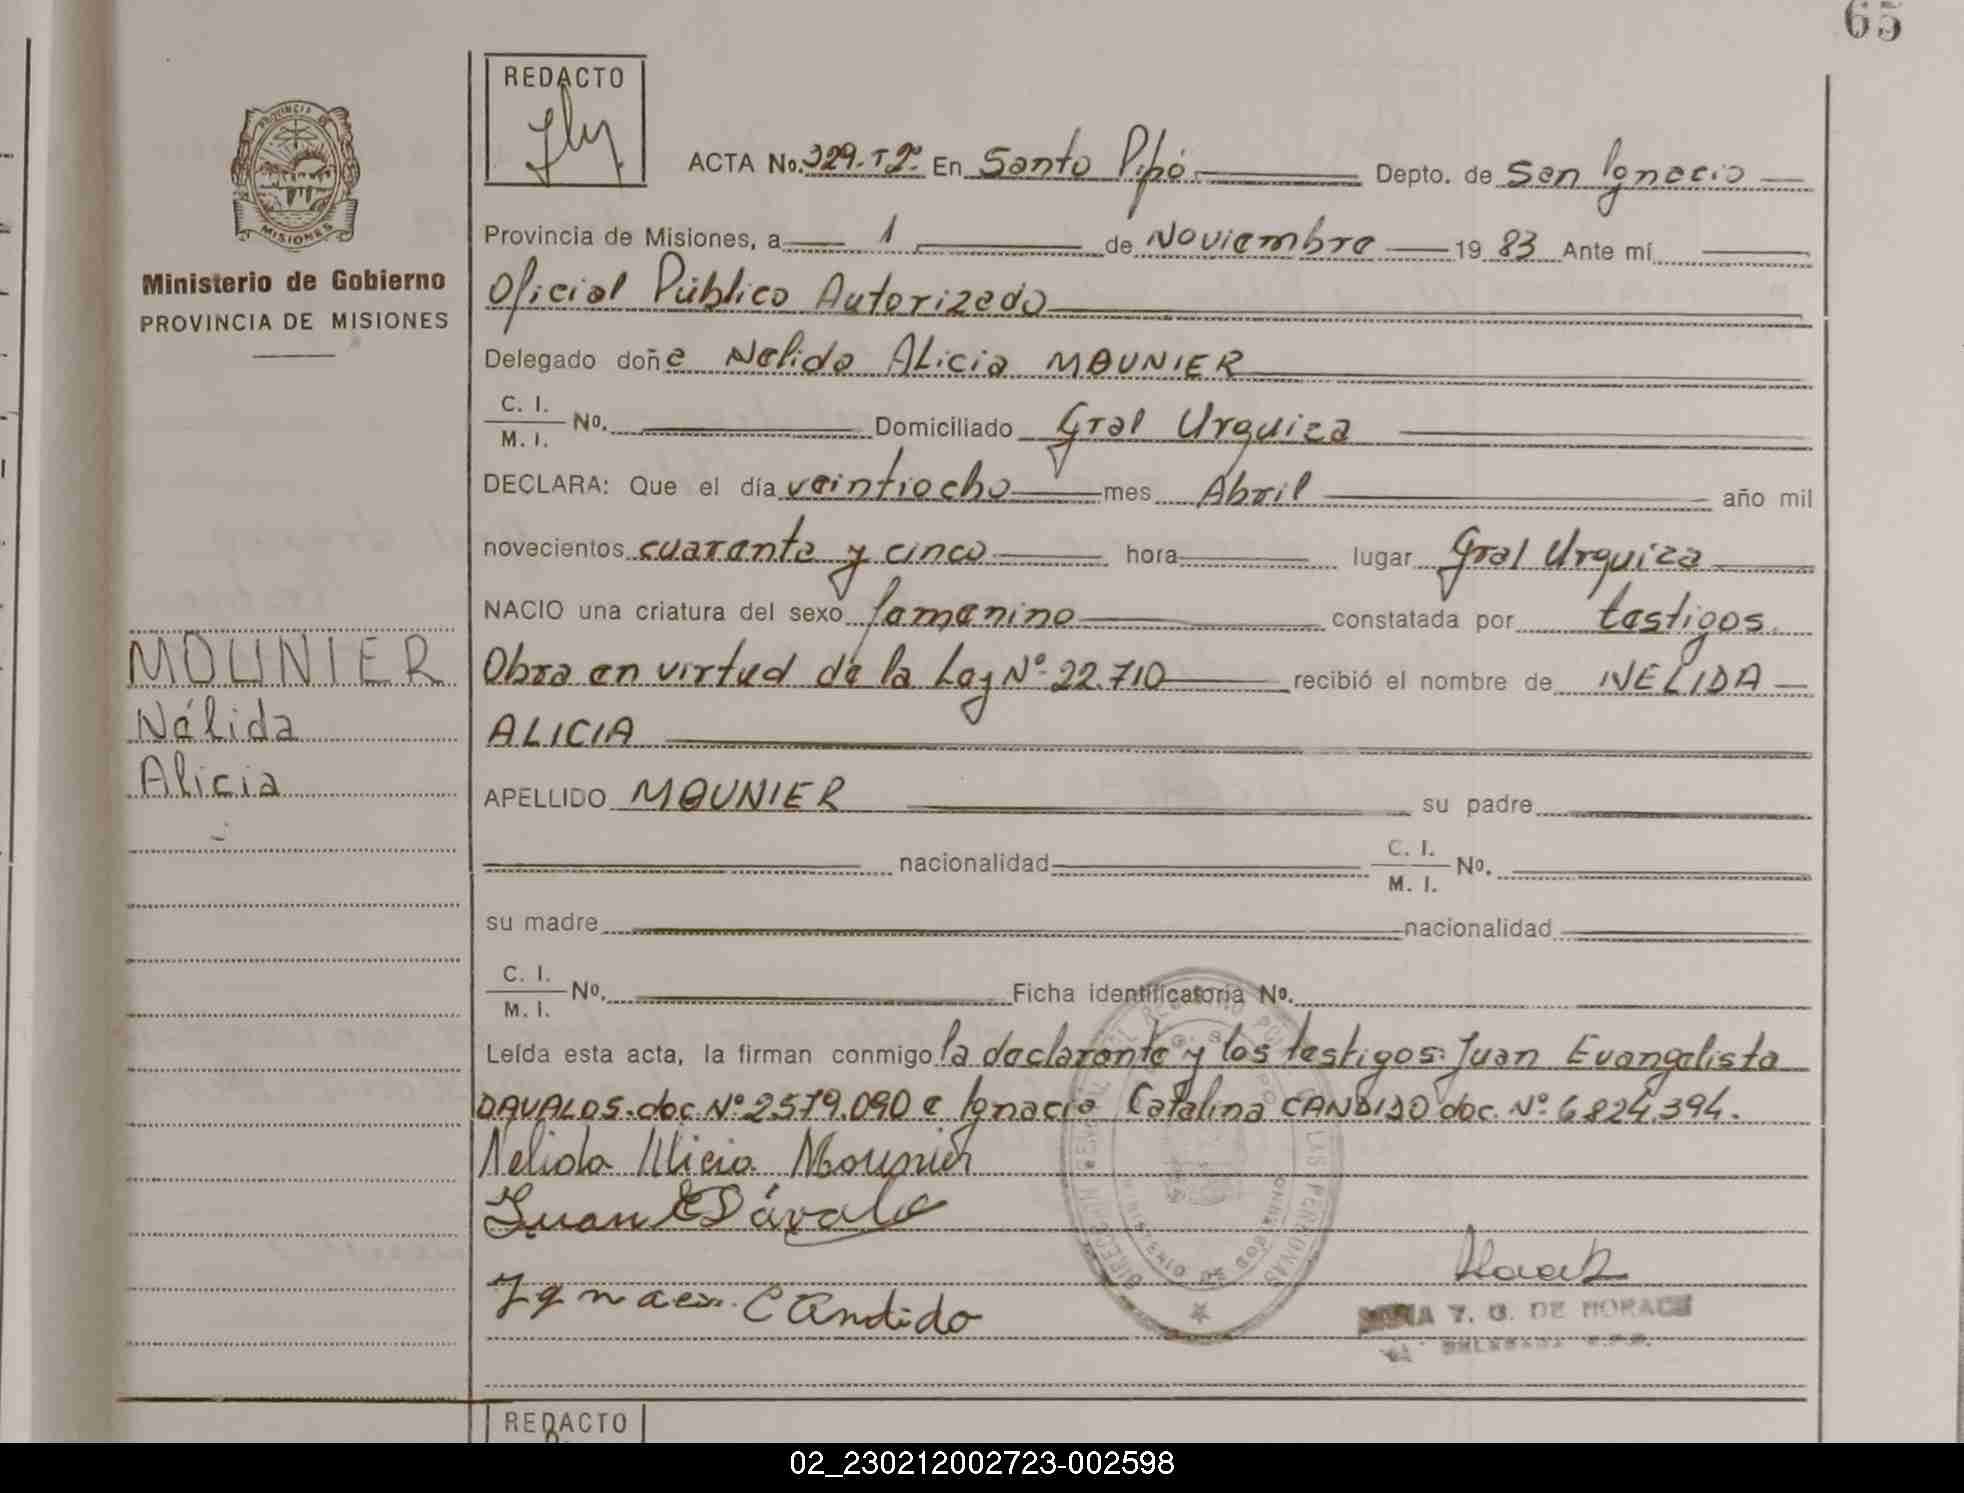 65
REDACTO
PROVINCIA DE
MISIONES
Ministerio de Gobierno
PROVINCIA DE MISIONES
ACTA No. 329. T2º. En Santo Pipó Depto. de San Ignacio
Provincia de Misiones, a 1 de Noviembre 19 83 Ante mí
Oficial Público Autorizado
Delegado doña Nelida Alicia MOUNIER
C. I.
M. I. No. Domiciliado Gral Urquiza
DECLARA: Que el día veintiocho mes Abril año mil
novecientos cuarenta y cinco hora lugar Gral Urquiza
NACIO una criatura del sexo femenino constatada por testigos.
Obra en virtud de la Ley Nº 22.710 recibió el nombre de NELIDA
ALICIA
APELLIDO MOUNIER su padre
nacionalidad C. I.
M. I. No.
su madre nacionalidad
C. I.
M. I. No. Ficha identificatoria No.
Leída esta acta, la firman conmigo la declarante y los testigos: Juan Evangelista
DAVALOS. doc. Nº 2.579.090 e Ignacia Catalina CANDIDO doc. Nº 6.824.394.
Nelida Alicia Mounier
Juan E Dávalo
Ignacia. Candido
T. G. DE HORACK
DELEGADA
MOUNIER
Nélida
Alicia
REDACTO
02_230212002723-002598